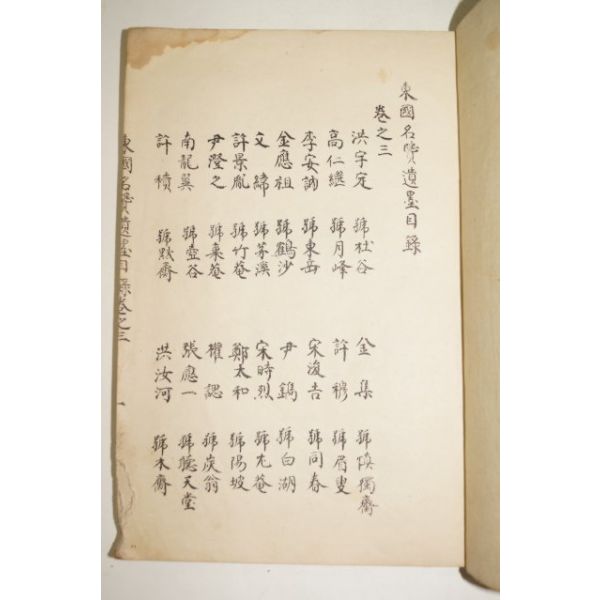 東國名賢遺墨目錄
卷之三
洪宇定 號杜谷 金集 號愼獨齋
高仁繼 號月峰 許穆 號眉叟
李安訥 號東岳 宋浚吉 號同春
金應祖 號鶴沙 尹鑴 號白湖
文緯 號茅溪 宋時烈 號尤菴
許景胤 號竹菴 鄭太和 號陽坡
尹澄之 號棄菴 權諰 號炭翁
南龍翼 號壺谷 張應一 號聽天堂
許積 號默齋 洪汝河 號木齋
東國名賢遺墨目錄卷之三 一